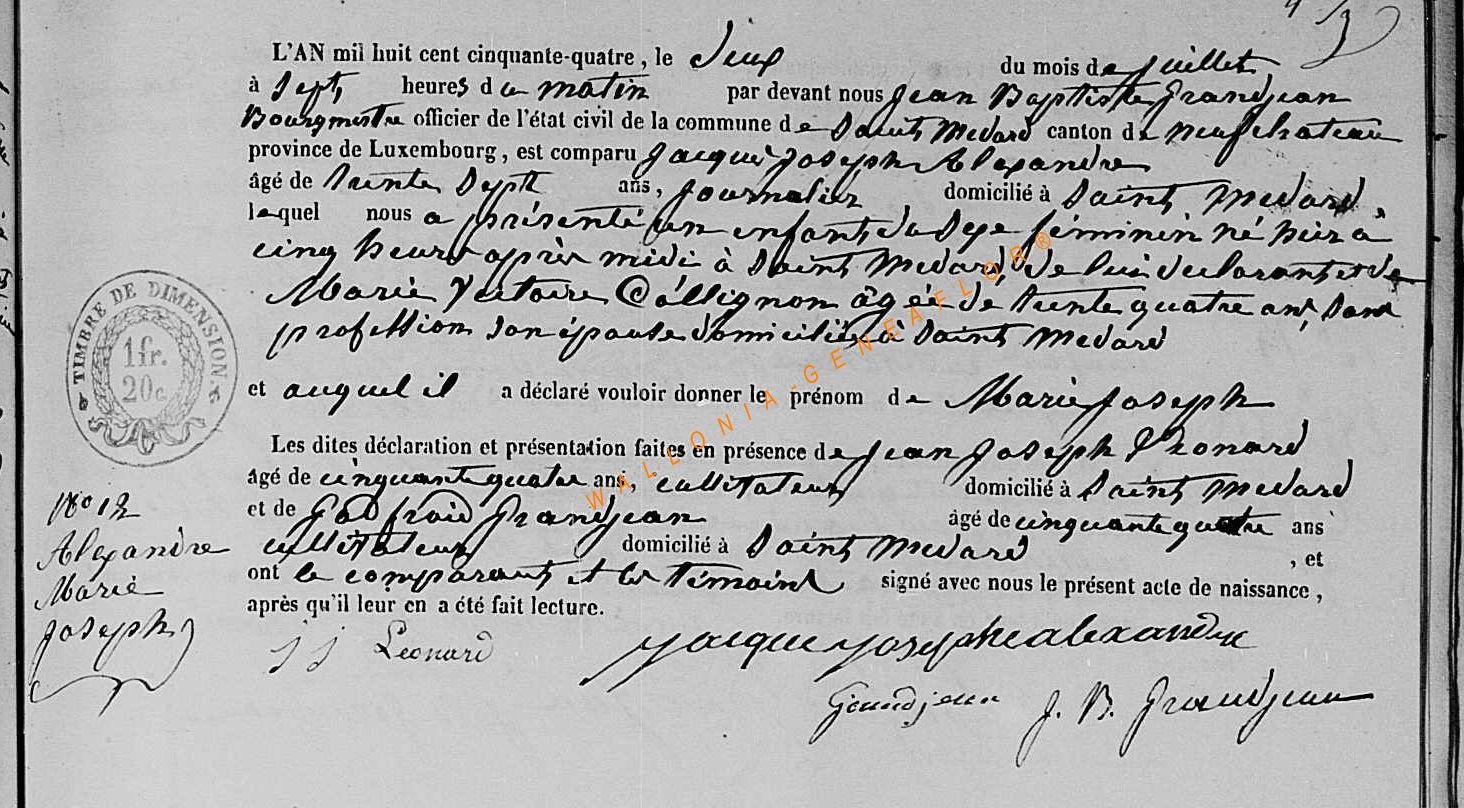 L'AN mil huit cent cinquante-quatre, le Deux du mois de Juillet
à Sept heures du matin par devant nous Jean Baptiste Grandjean
Bourgmestre officier de l'état civil de la commune de Saint Medard canton de neufchateau
province de Luxembourg, est comparu Jacque Joseph Alexandre
âgé de trente Sept ans, Journalier domicilié à Saint Medard,
lequel nous a présenté un enfant du Sexe féminin né hier à
cinq heures après midi à Saint Medard de lui declarant et de
Marie Victoire Collignon âgée de trente quatre ans, Sans
profession Son épouse domiciliée à Saint Medard
et auquel il a déclaré vouloir donner le prénom de Marie Joseph
Les dites déclaration et présentation faites en présence de Jean Joseph Léonard
âgé de cinquante quatre ans, cultivateur domicilié à Saint Medard
et de Godfroid Grandjean âgé de cinquante quatre ans
cultivateur domicilié à Saint Medard, et
ont le comparant et les témoins signé avec nous le présent acte de naissance,
après qu'il leur en a été fait lecture.
J J Léonard
jacque josephe alexandre
Grandjean J. B. Grandjean
No 12
Alexandre
Marie
Joseph
TIMBRE DE DIMENSION
1 fr.
20 c.
WALLONIA-GENEAFLOR®